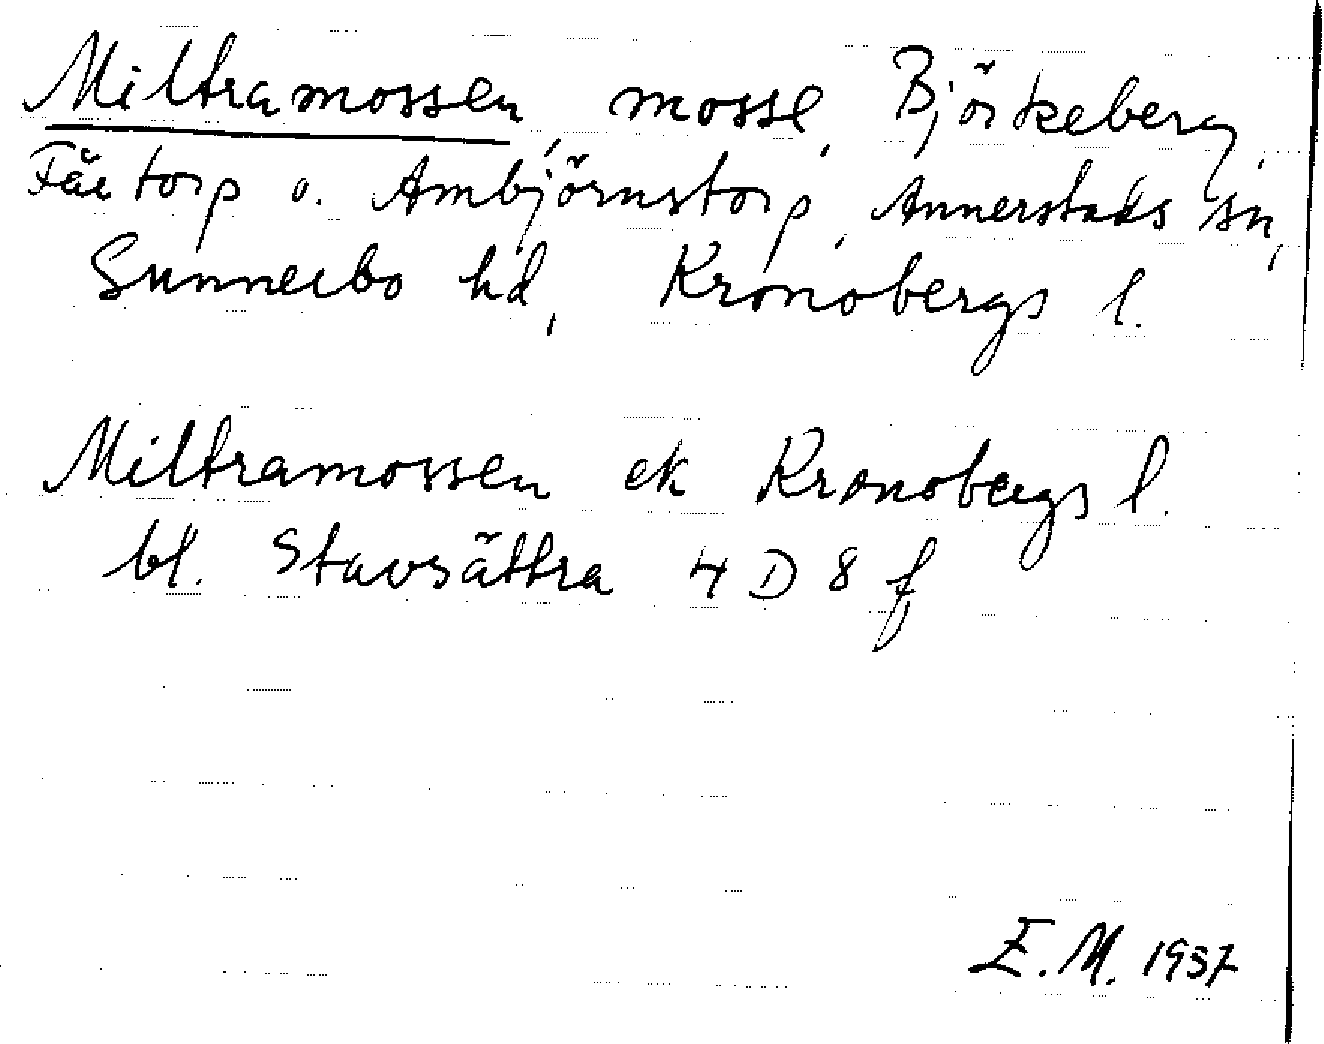 Miltramossen, mosse, Björkeberg,
Fårtorp o. Ambjörnstorp, Annerstads sn,
Sunnerbo hd, Kronobergs l.
Miltramossen ek Kronobergs l.
bl. Stavsättra 4 D 8 f
E.M. 1957